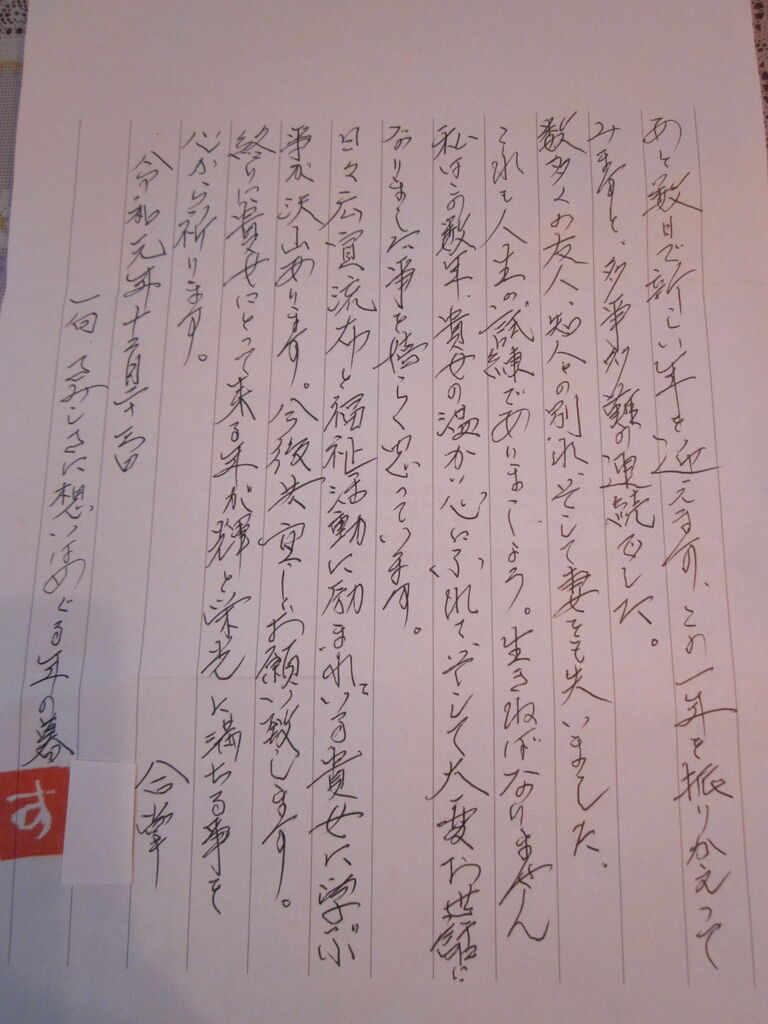 あと数日で新しい年を迎えますが、この一年を振りかえって
みますと、多事多難の連続でした。
数多くの友人、知人との別れ、そして妻をも失いました。
これも人生の試練でありましょう。生きねばなりません
私はこの数年、貴女の温かい心にふれて、そして大変お世話に
なりました事を嬉しく思っています。
日々広宣流布と福祉活動に励まれている貴女に学ぶ
事が沢山あります。今後共宜しくお願い致します。
終りに貴女にとって来る年が輝と栄光に満ちる事を
心から祈ります。
合掌
令和元年十二月二十三日
一句、 さみしさに想いはめぐる年の暮
す